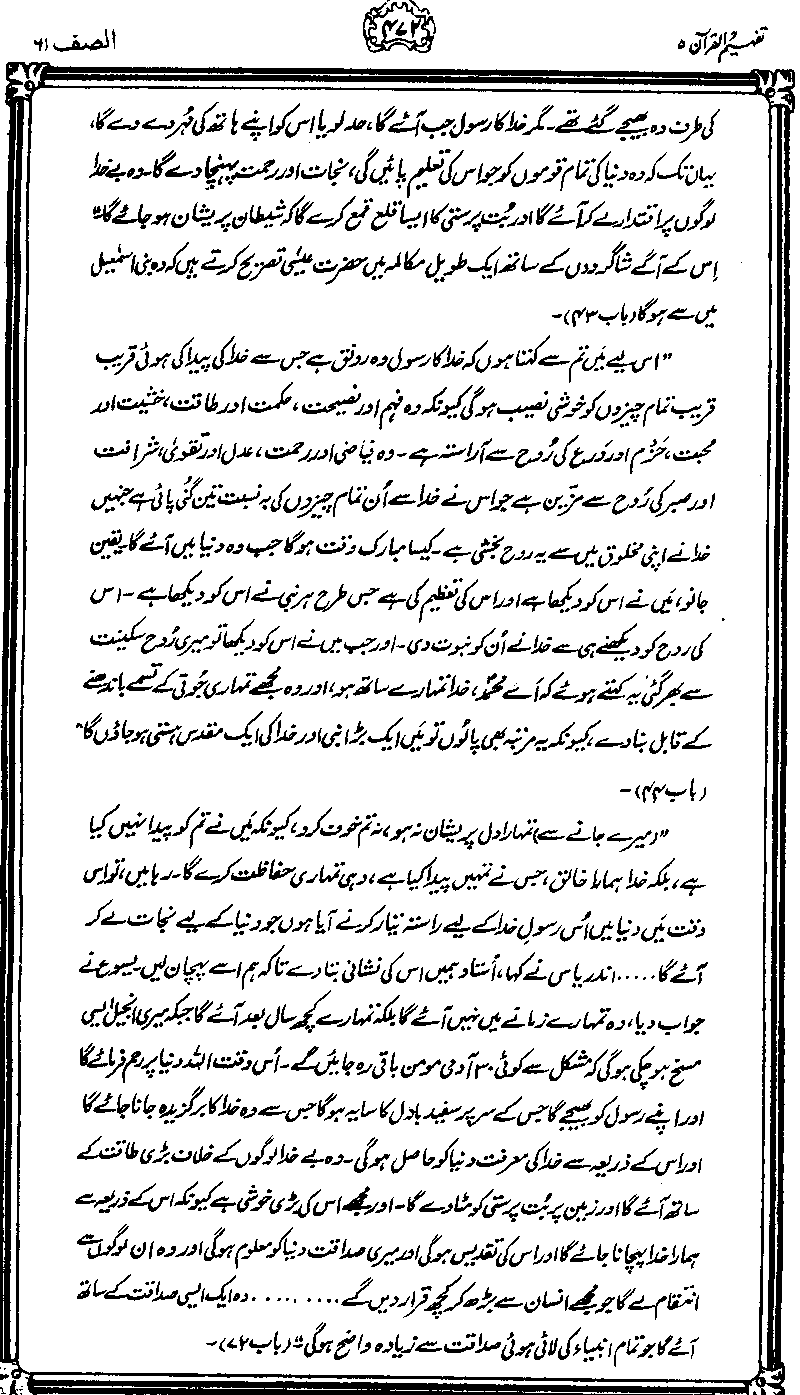 تفہیم القرآن ۵
۴۷۲
الصف ۶۱
کی طرف وہ بھیجے گئے تھے۔ مگر خدا کا رسول جب آئے گا، خدا گویا اس کو اپنے ہاتھ کی مُہر دے دے گا،
یہاں تک کہ وہ دنیا کی تمام قوموں کو جو اس کی تعلیم پائیں گی، نجات اور رحمت پہنچا دے گا۔ وہ بے خدا
لوگوں پر اقتدار لے کر آئے گا اور بُت پرستی کا ایسا قلع قمع کرے گا کہ شیطان پریشان ہو جائے گا"
اِس کے آگے شاگردوں کے ساتھ ایک طویل مکالمہ میں حضرت عیسٰی تصریح کرتے ہیں کہ وہ بنی اسمٰعیل
میں سے ہوگا (باب ۴۳)۔
"اس لیے میں تم سے کہتا ہوں کہ خدا کا رسول وہ رونق ہے جس سے خدا کی پیدا کی ہوئی قریب
قریب تمام چیزوں کو خوشی نصیب ہوگی کیونکہ وہ فہم اور نصیحت، حکمت اور طاقت، خشیت اور
محبت، حَزم اور وَرع کی رُوح سے آراستہ ہے۔ وہ فیاضی اور رحمت، عدل اور تقویٰ، شرافت
اور صبر کی رُوح سے مزّین ہے جو اس نے خدا سے اُن تمام چیزوں کی بہ نسبت تین گنی پائی ہے جنہیں
خدا نے اپنی مخلوق میں سے یہ روح بخشی ہے۔ کیسا مبارک وقت ہوگا جب وہ دنیا میں آئے گا۔ یقین
جانو، میں نے اس کو دیکھا ہے اور اس کی تعظیم کی ہے جس طرح ہر نبی نے اس کو دیکھا ہے۔ اس
کی روح کو دیکھنے ہی سے خدا نے اُن کو نبوت دی۔ اور جب میں نے اس کو دیکھا تو میری رُوح سکینت
سے بھر گئی یہ کہتے ہوئے کہ اَے محمدؐ، خدا تمہارے ساتھ ہو، اور وہ مجھے تمہاری جُوتی کے تسمے باندھنے
کے قابل بنا دے، کیونکہ یہ مرتبہ بھی پاؤں تو میں ایک بڑا نبی اور خدا کی ایک مقدس ہستی ہو جاؤں گا"
(باب ۴۴)۔
"(میرے جانے سے) تمہارا دل پریشان نہ ہو، نہ تم خوف کرو، کیونکہ میں نے تم کو پیدا نہیں کیا
ہے، بلکہ خدا ہمارا خالق، جس نے تمہیں پیدا کیا ہے، وہی تمہاری حفاظت کرے گا۔ رہا میں، تو اِس
وقت میں دنیا میں اُس رسولِ خدا کے لیے راستہ تیار کرنے آیا ہوں جو دنیا کے لیے نجات لے کر
آئے گا ..... اندریاس نے کہا، اُستاد ہمیں اس کی نشانی بتا دے تاکہ ہم اسے پہچان لیں۔ یسوع نے
جواب دیا، وہ تمہارے زمانے میں نہیں آئے گا بلکہ تمہارے کچھ سال بعد آئے گا جبکہ میری انجیل ایسی
مسخ ہو چکی ہوگی کہ مشکل سے کوئی ۳۰ آدمی مومن باقی رہ جائیں گے۔ اُس وقت اللہ دنیا پر رحم فرمائے گا
اور اپنے رسول کو بھیجے گا جس کے سر پر سفید بادل کا سایہ ہوگا جس سے وہ خدا کا برگزیدہ جانا جائے گا
اور اس کے ذریعہ سے خدا کی معرفت دنیا کو حاصل ہوگی۔ وہ بے خدا لوگوں کے خلاف بڑی طاقت کے
ساتھ آئے گا اور زمین پر بُت پرستی کو مٹا دے گا۔ اور مجھے اس کی بڑی خوشی ہے کیونکہ اس کے ذریعہ سے
ہمارا خدا پہچانا جائے گا اور اس کی تقدیس ہوگی اور میری صداقت دنیا کو معلوم ہوگی اور وہ ان لوگوں سے
انتقام لے گا جو مجھے انسان سے بڑھ کر کچھ قرار دیں گے .......... وہ ایک ایسی صداقت کے ساتھ
آئے گا جو تمام انبیاء کی لائی ہوئی صداقت سے زیادہ واضح ہوگی" (باب ۷۲)۔